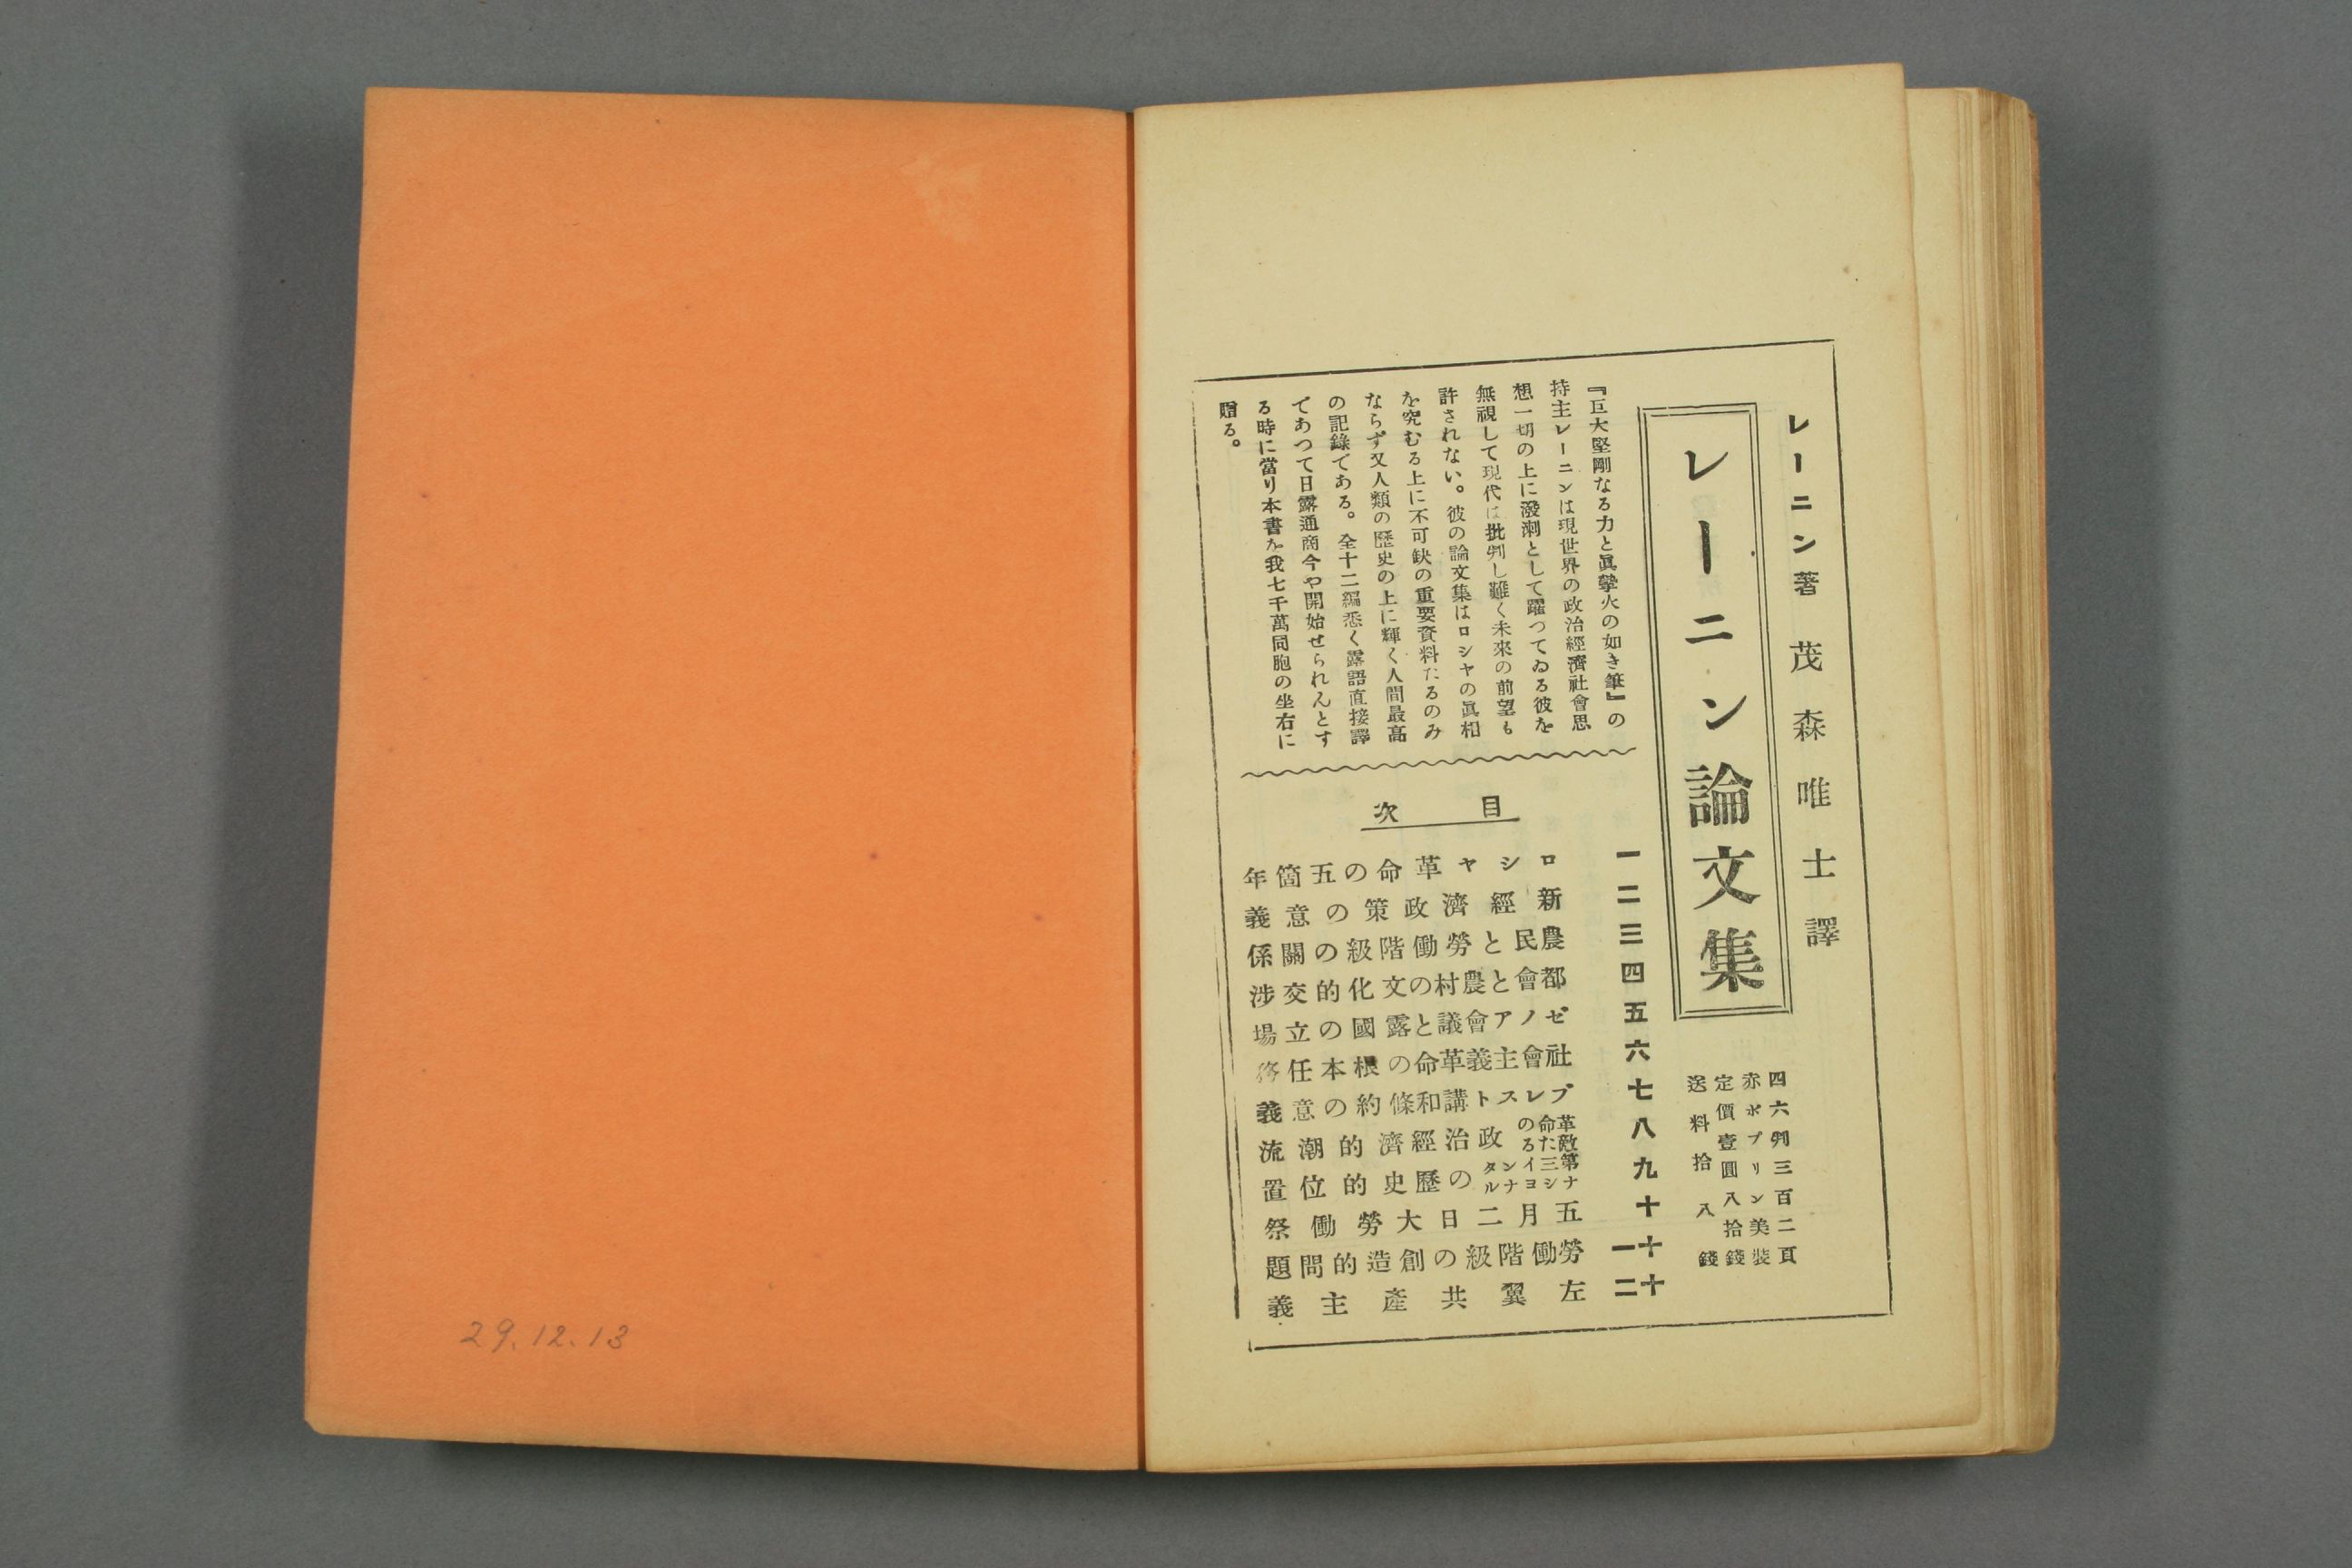 レーニン著 茂森唯士譯
レーニン論文集
四六判三百二頁
赤ポプリン美裝
定價壹圓八拾錢
送料拾八錢
『巨大堅剛なる力と眞摯火の如き筆』の
持主レーニンは現世界の政治經濟社會思
想一切の上に潑溂として躍つてゐる彼を
無視して現代は批判し難く未來の前望も
許されない。彼の論文集はロシヤの眞相
を究むる上に不可缺の重要資料たるのみ
ならず又人類の歷史の上に輝く人間最高
の記錄である。全十二編悉く露語直接譯
であつて日露通商今や開始せられんとす
る時に當り本書を我七千萬同胞の坐右に
贈る。
目次
一 ロシヤ革命の五箇年
二 新經濟政策の意義
三 農民と勞働階級の關係
四 都會と農村の文化的交涉
五 ゼノア會議と露國の立場
六 社會主義革命の根本任務
七 ブレスト講和條約の意義
八 革命の敵たる政治經濟的潮流
九 第三インタナシヨナルの歷史的位置
十 五月二日大勞働祭
十一 勞働階級の創造的問題
十二 左翼共產主義
29.12.13